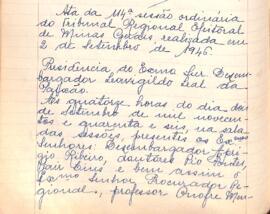 Ata da 114ª sessão ordinária
do Tribunal Regional Eleitoral
de Minas Gerais, realizada em
2 de Setembro de 1946.
Presidência do Exmo Snr. Desem-
bargador Leovigildo Leal da
Paixão.
Às quatorze horas do dia dois
de Setembro de mil novecen-
tos e quarenta e seis, na sala
das sessões, presentes os Exmos
Senhores: Desembargador
Ribeiro, doutores
e bem assim o
Exmo Senhor, Procurador Re-
gional, professor Onofre Men-